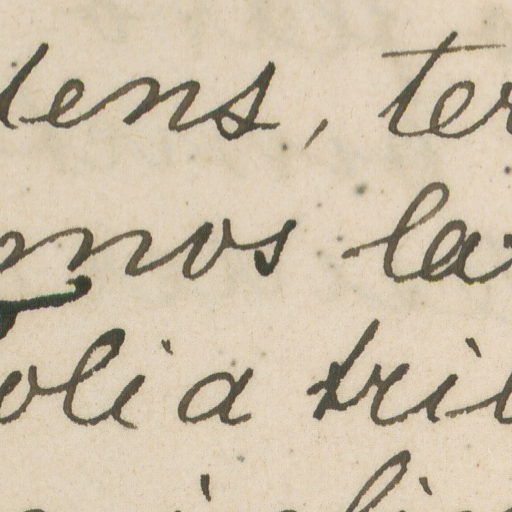 dens, ter
mos la
olia tri